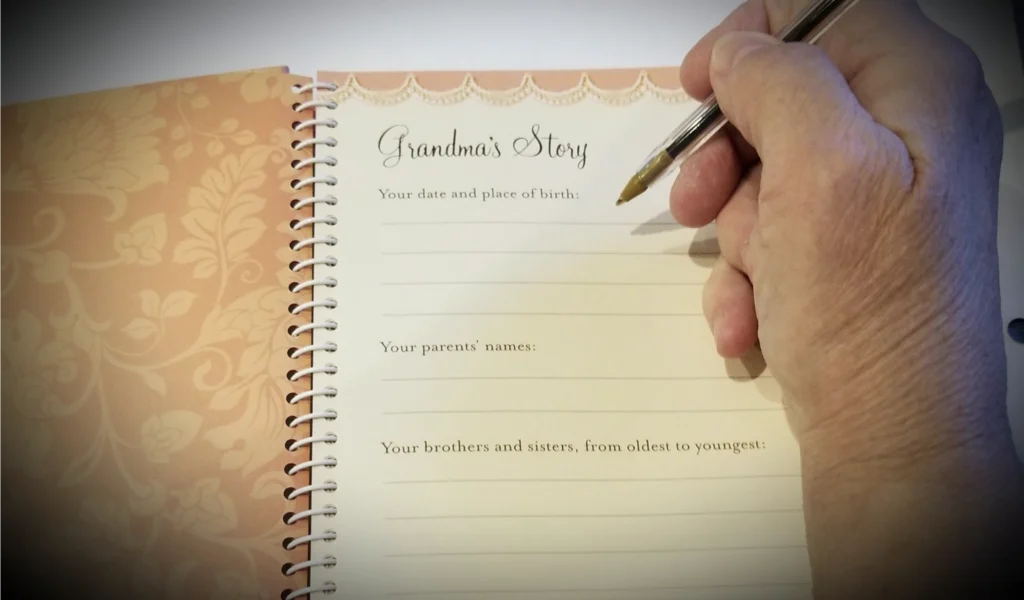 Grandma's Story
Your date and place of birth:
Your parents' names:
Your brothers and sisters, from oldest to youngest: